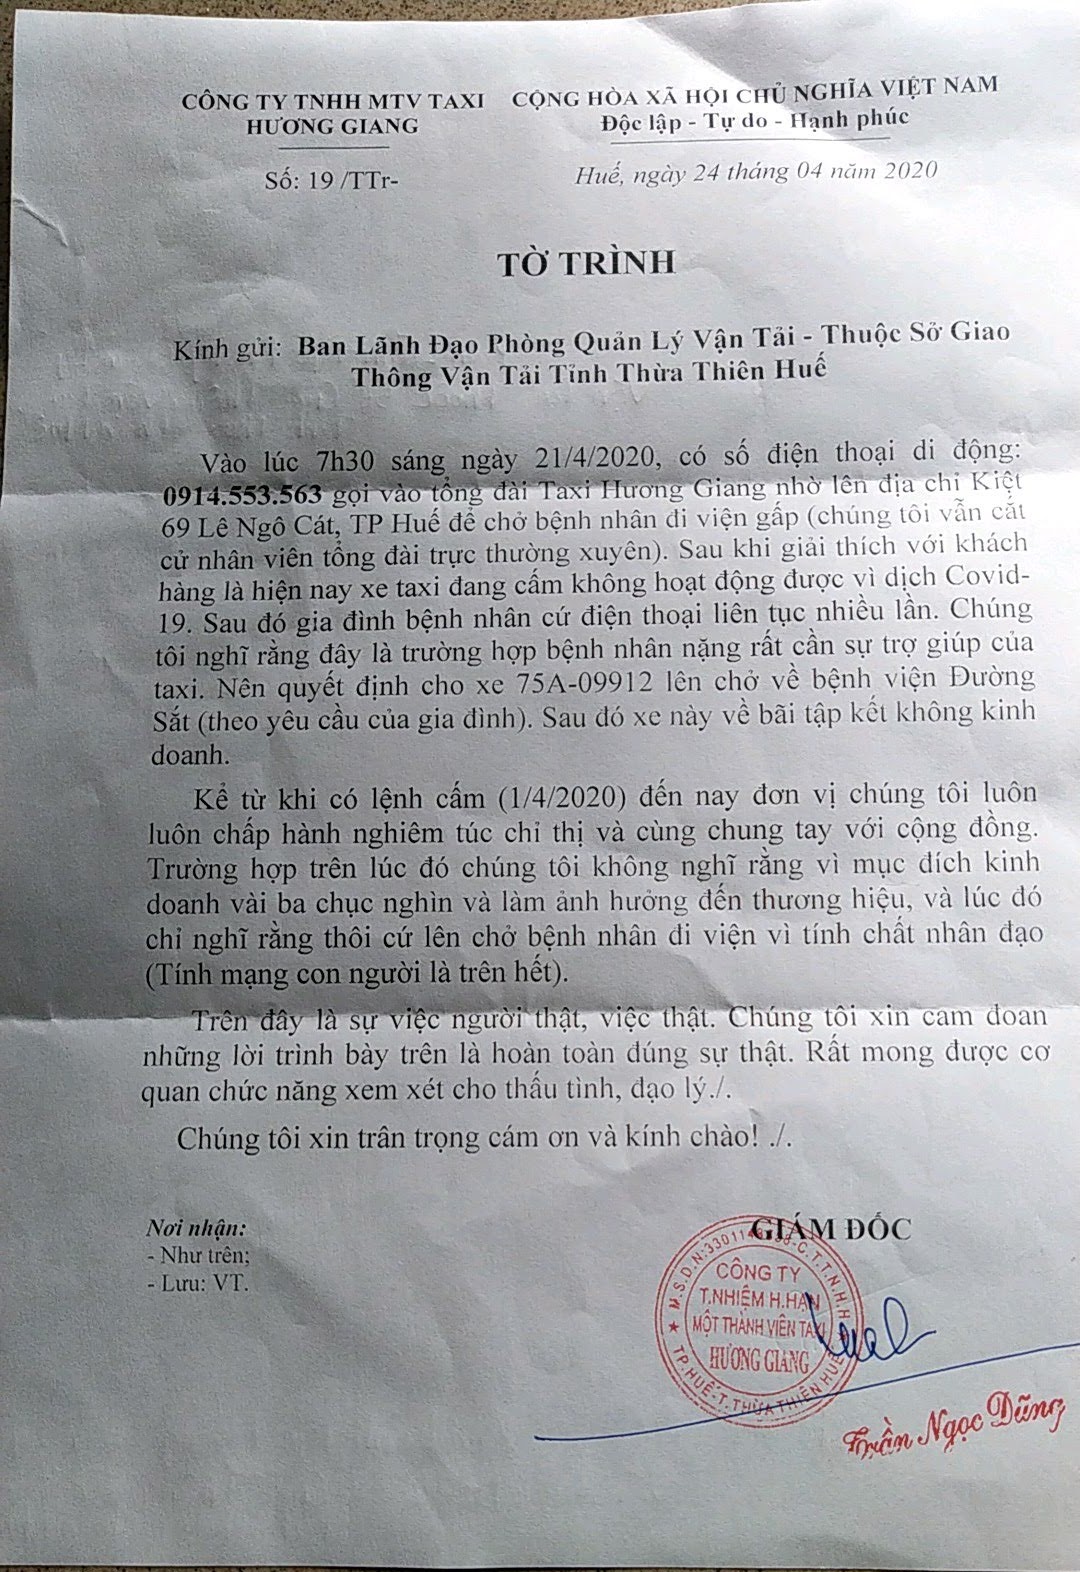 CÔNG TY TNHH MTV TAXI
HƯƠNG GIANG
Số: 19 /TTr-
CỘNG HÒA XÃ HỘI CHỦ NGHĨA VIỆT NAM
Độc lập - Tự do - Hạnh phúc
Huế, ngày 24 tháng 04 năm 2020
TỜ TRÌNH
Kính gửi: Ban Lãnh Đạo Phòng Quản Lý Vận Tải - Thuộc Sở Giao
Thông Vận Tải Tỉnh Thừa Thiên Huế
Vào lúc 7h30 sáng ngày 21/4/2020, có số điện thoại di động:
0914.553.563 gọi vào tổng đài Taxi Hương Giang nhờ lên địa chỉ Kiệt
69 Lê Ngô Cát, TP Huế để chở bệnh nhân đi viện gấp (chúng tôi vẫn cắt
cử nhân viên tổng đài trực thường xuyên). Sau khi giải thích với khách
hàng là hiện nay xe taxi đang cấm không hoạt động được vì dịch Covid-
19. Sau đó gia đình bệnh nhân cứ điện thoại liên tục nhiều lần. Chúng
tôi nghĩ rằng đây là trường hợp bệnh nhân nặng rất cần sự trợ giúp của
taxi. Nên quyết định cho xe 75A-09912 lên chở về bệnh viện Đường
Sắt (theo yêu cầu của gia đình). Sau đó xe này về bãi tập kết không kinh
doanh.
Kể từ khi có lệnh cấm (1/4/2020) đến nay đơn vị chúng tôi luôn
luôn chấp hành nghiêm túc chỉ thị và cùng chung tay với cộng đồng.
Trường hợp trên lúc đó chúng tôi không nghĩ rằng vì mục đích kinh
doanh vài ba chục nghìn và làm ảnh hưởng đến thương hiệu, và lúc đó
chỉ nghĩ rằng thôi cứ lên chở bệnh nhân đi viện vì tính chất nhân đạo
(Tính mạng con người là trên hết).
Trên đây là sự việc người thật, việc thật. Chúng tôi xin cam đoan
những lời trình bày trên là hoàn toàn đúng sự thật. Rất mong được cơ
quan chức năng xem xét cho thấu tình, đạo lý./.
Chúng tôi xin trân trọng cám ơn và kính chào! ./.
Nơi nhận:
- Như trên;
- Lưu: VT.
GIÁM ĐỐC
C.T.T.N.H.H
CÔNG TY
T.NHIỆM H.HẠN
MỘT THÀNH VIÊN TAXI
HƯƠNG GIANG
TP.HUẾ-T.THỪA THIÊN HUẾ
Trần Ngọc Dũng